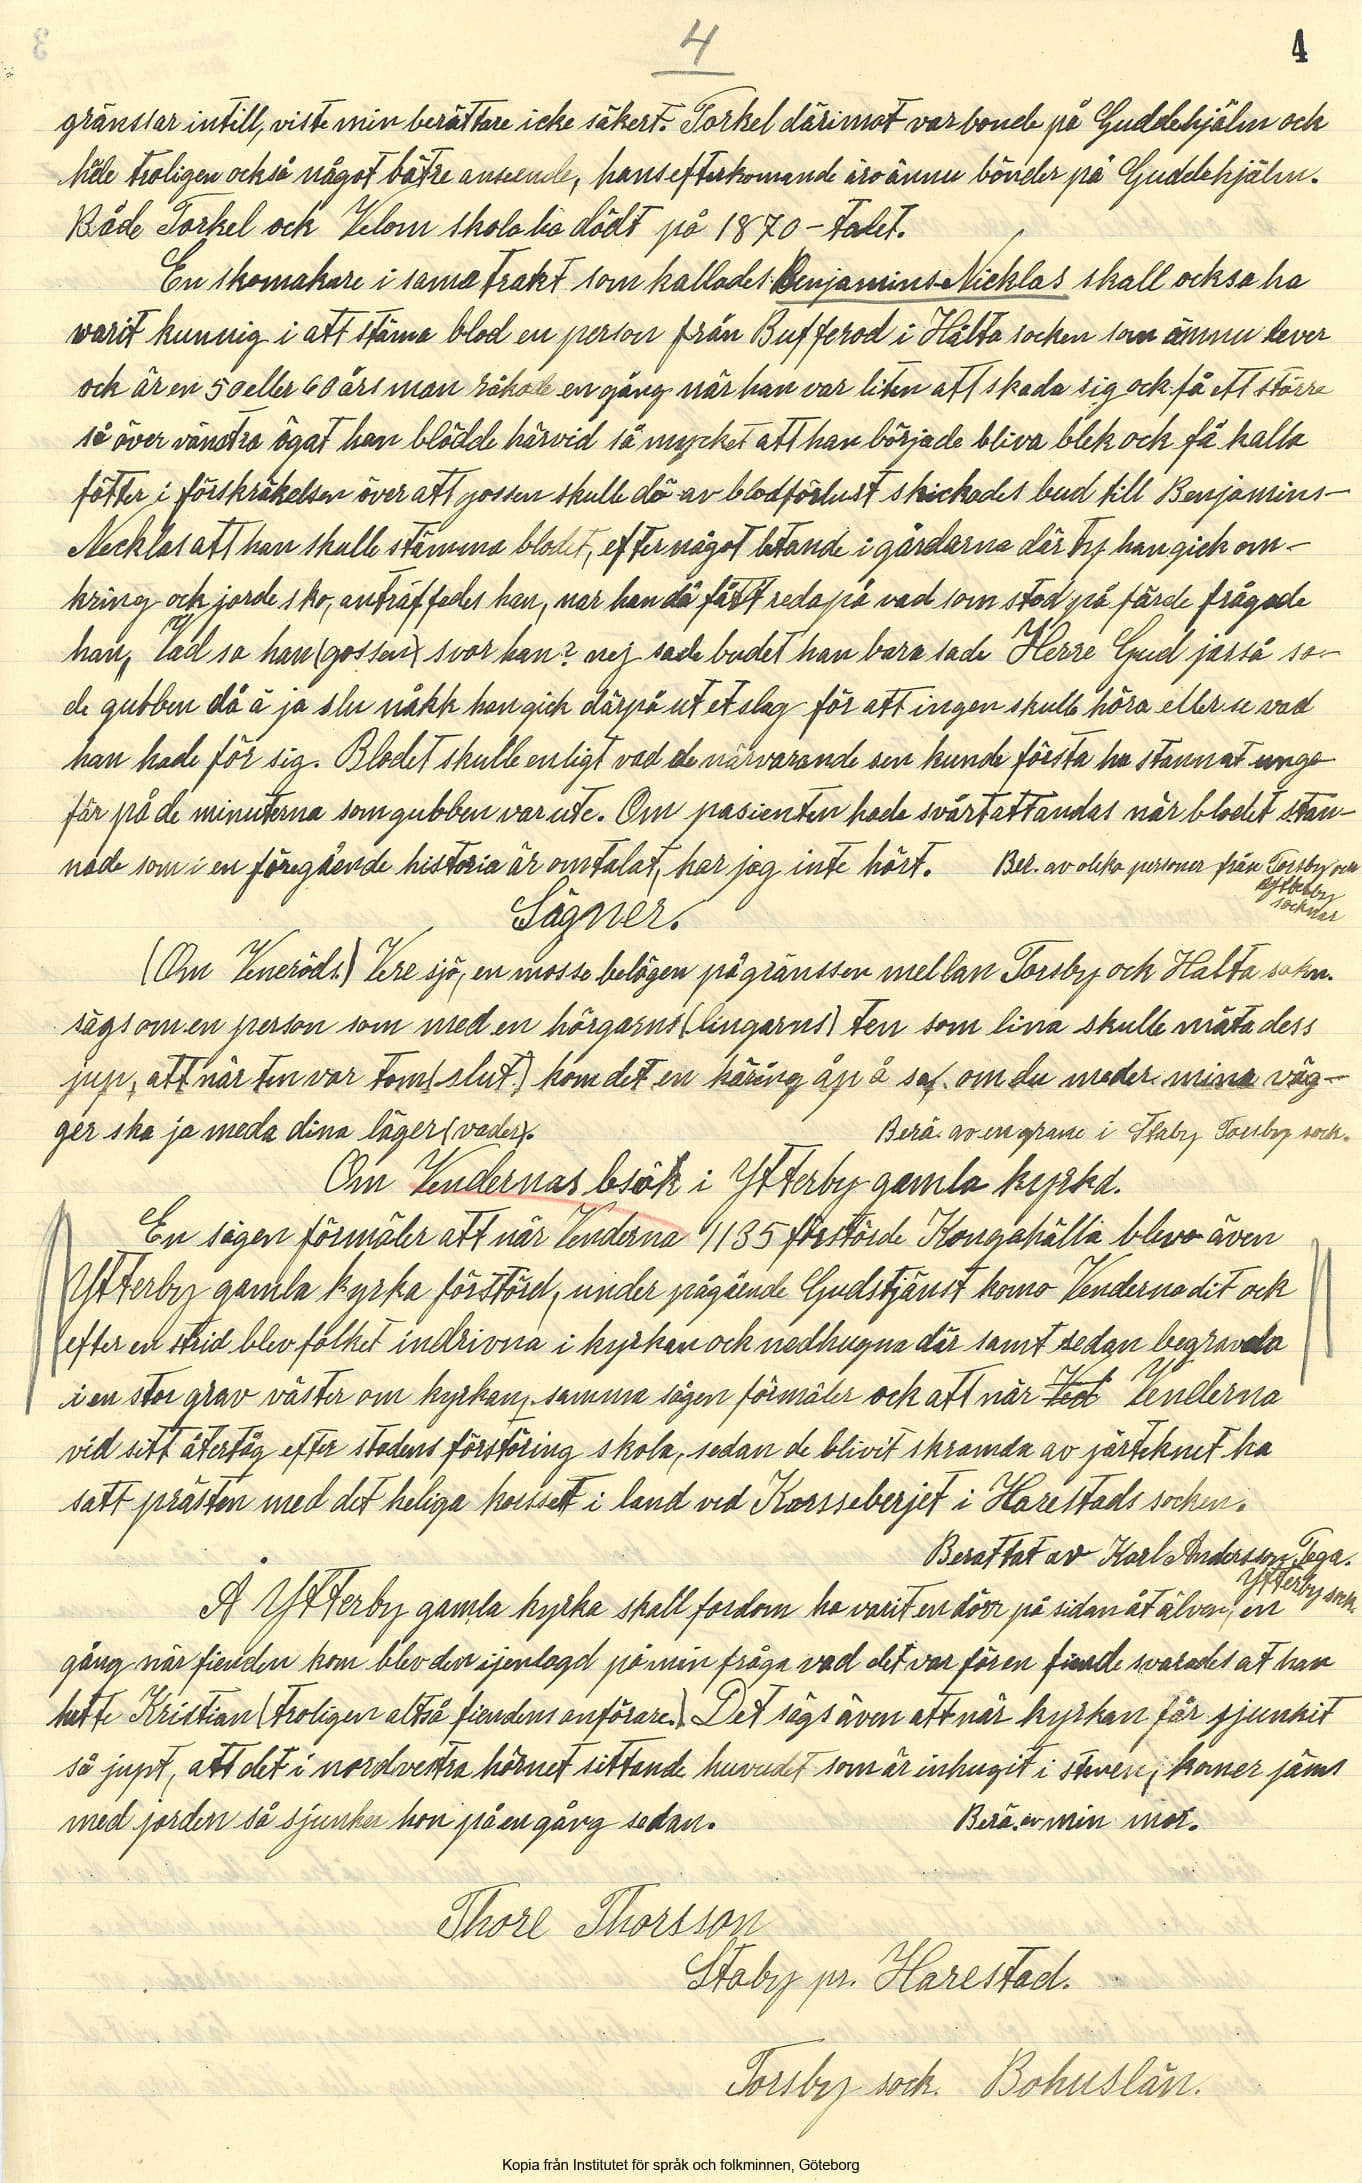 4
4
gränssar intill, viste min berättare icke säkert. Torkel därimot var bonde på Guddehjälm ock
håde troligen också något bätre anseende, hans efterkomande äro ännu bönder på Guddehjälm.
Både Torkel ock Velom skola ha dödt på 1870-talet.
En skomakare i sama trakt som kallades Benjamins-Nicklas skall också ha
varit kunnig i att stäma blod en person från Bufferöd i Hålta socken som ämnu lever
ock är en 50 eller 60 års man råkade en gång när han var liten att skada sig ock få ett större
så över vänstra ögat han blödde härvid så mycket att han började bliva blek ock få kalla
fötter i förskräkelsen över att gossen skulle dö av blodförlust skickades bud till Benjamins-
Necklas att han skulle stämma blodet, efter något letande i gårdarna där ty han gick om-
kring ock jorde sko, anträffades han, när han då fått reda på vad som stod på färde frågade
han, Vad sa han (gossen) svor han? nej sade budet han bara sade Herre Gud jasså sa-
de gubben då ä ja slu nåkk han gick därpå ut et slag för att ingen skulle höra eller se vad
han hade för sig. Blodet skulle enligt vad de närvarande sen kunde första ha stannat unge-
fär på de minuterna som gubben var ute. Om pasienten hade svårt att andas när blodet stan-
nade som i en föregående historia är omtalat, har jag inte hört. Ber. av olika personer från Torsby och
Ytterby
socknar
Sägner.
(Om Veneröds.) Vere sjö, en mosse belägen på gränssen mellan Torsby ock Halta sokn.
sägs om en person som med en hörgarns (lingarns) ten som lina skulle mäta dess
jup, att när ten var tom (slut) kom det en käring åp å sa, om du meder mina väg-
ger ska ja meda dina läger (vader).
Berä. av en grane i Staby Torsby sock.
Om Vendernas besök i Ytterby gamla kyrka.
En sägen förmäler att när Venderna 1135 förstörde Kongahälla blevo även
Ytterby gamla kyrka förstörd, under pågående Gudstjänst komo Venderna dit ock
efter en strid blev folket indrivna i kyrkan ock nedhugna där samt sedan begravda
i en stor grav väster om kyrkan, samma sägen förmäler ock att när Venderna
vid sitt återtåg efter stadens förstöring skola, sedan de blivit skramda av järteknet ha
satt prästen med det heliga korsset i land ved Korsseberjet i Harestads socken.
Berattat av Karl Andersson, Tega.
Ytterby sock.
Å Ytterby gamla kyrka skall fordom ha varit en dörr på sidan åt älven, en
gång när fienden kom blev den ijenlagd på min fråga vad det var för en fiende svarades at han
hette Kristian (troligen altså fiendens anförare.) Det sägs även att när kyrkan får sjunkit
så jupt, att det i nordvestra hörnet sittande huvudet som är inhugit i stenen, komer jäms
med jorden så sjunker hon på en gång sedan.
Berä. av min mor.
Thore Thorsson
Staby pr. Harestad.
Torsby sock. Bohuslän.
Kopia från Institutet för språk och folkminnen, Göteborg